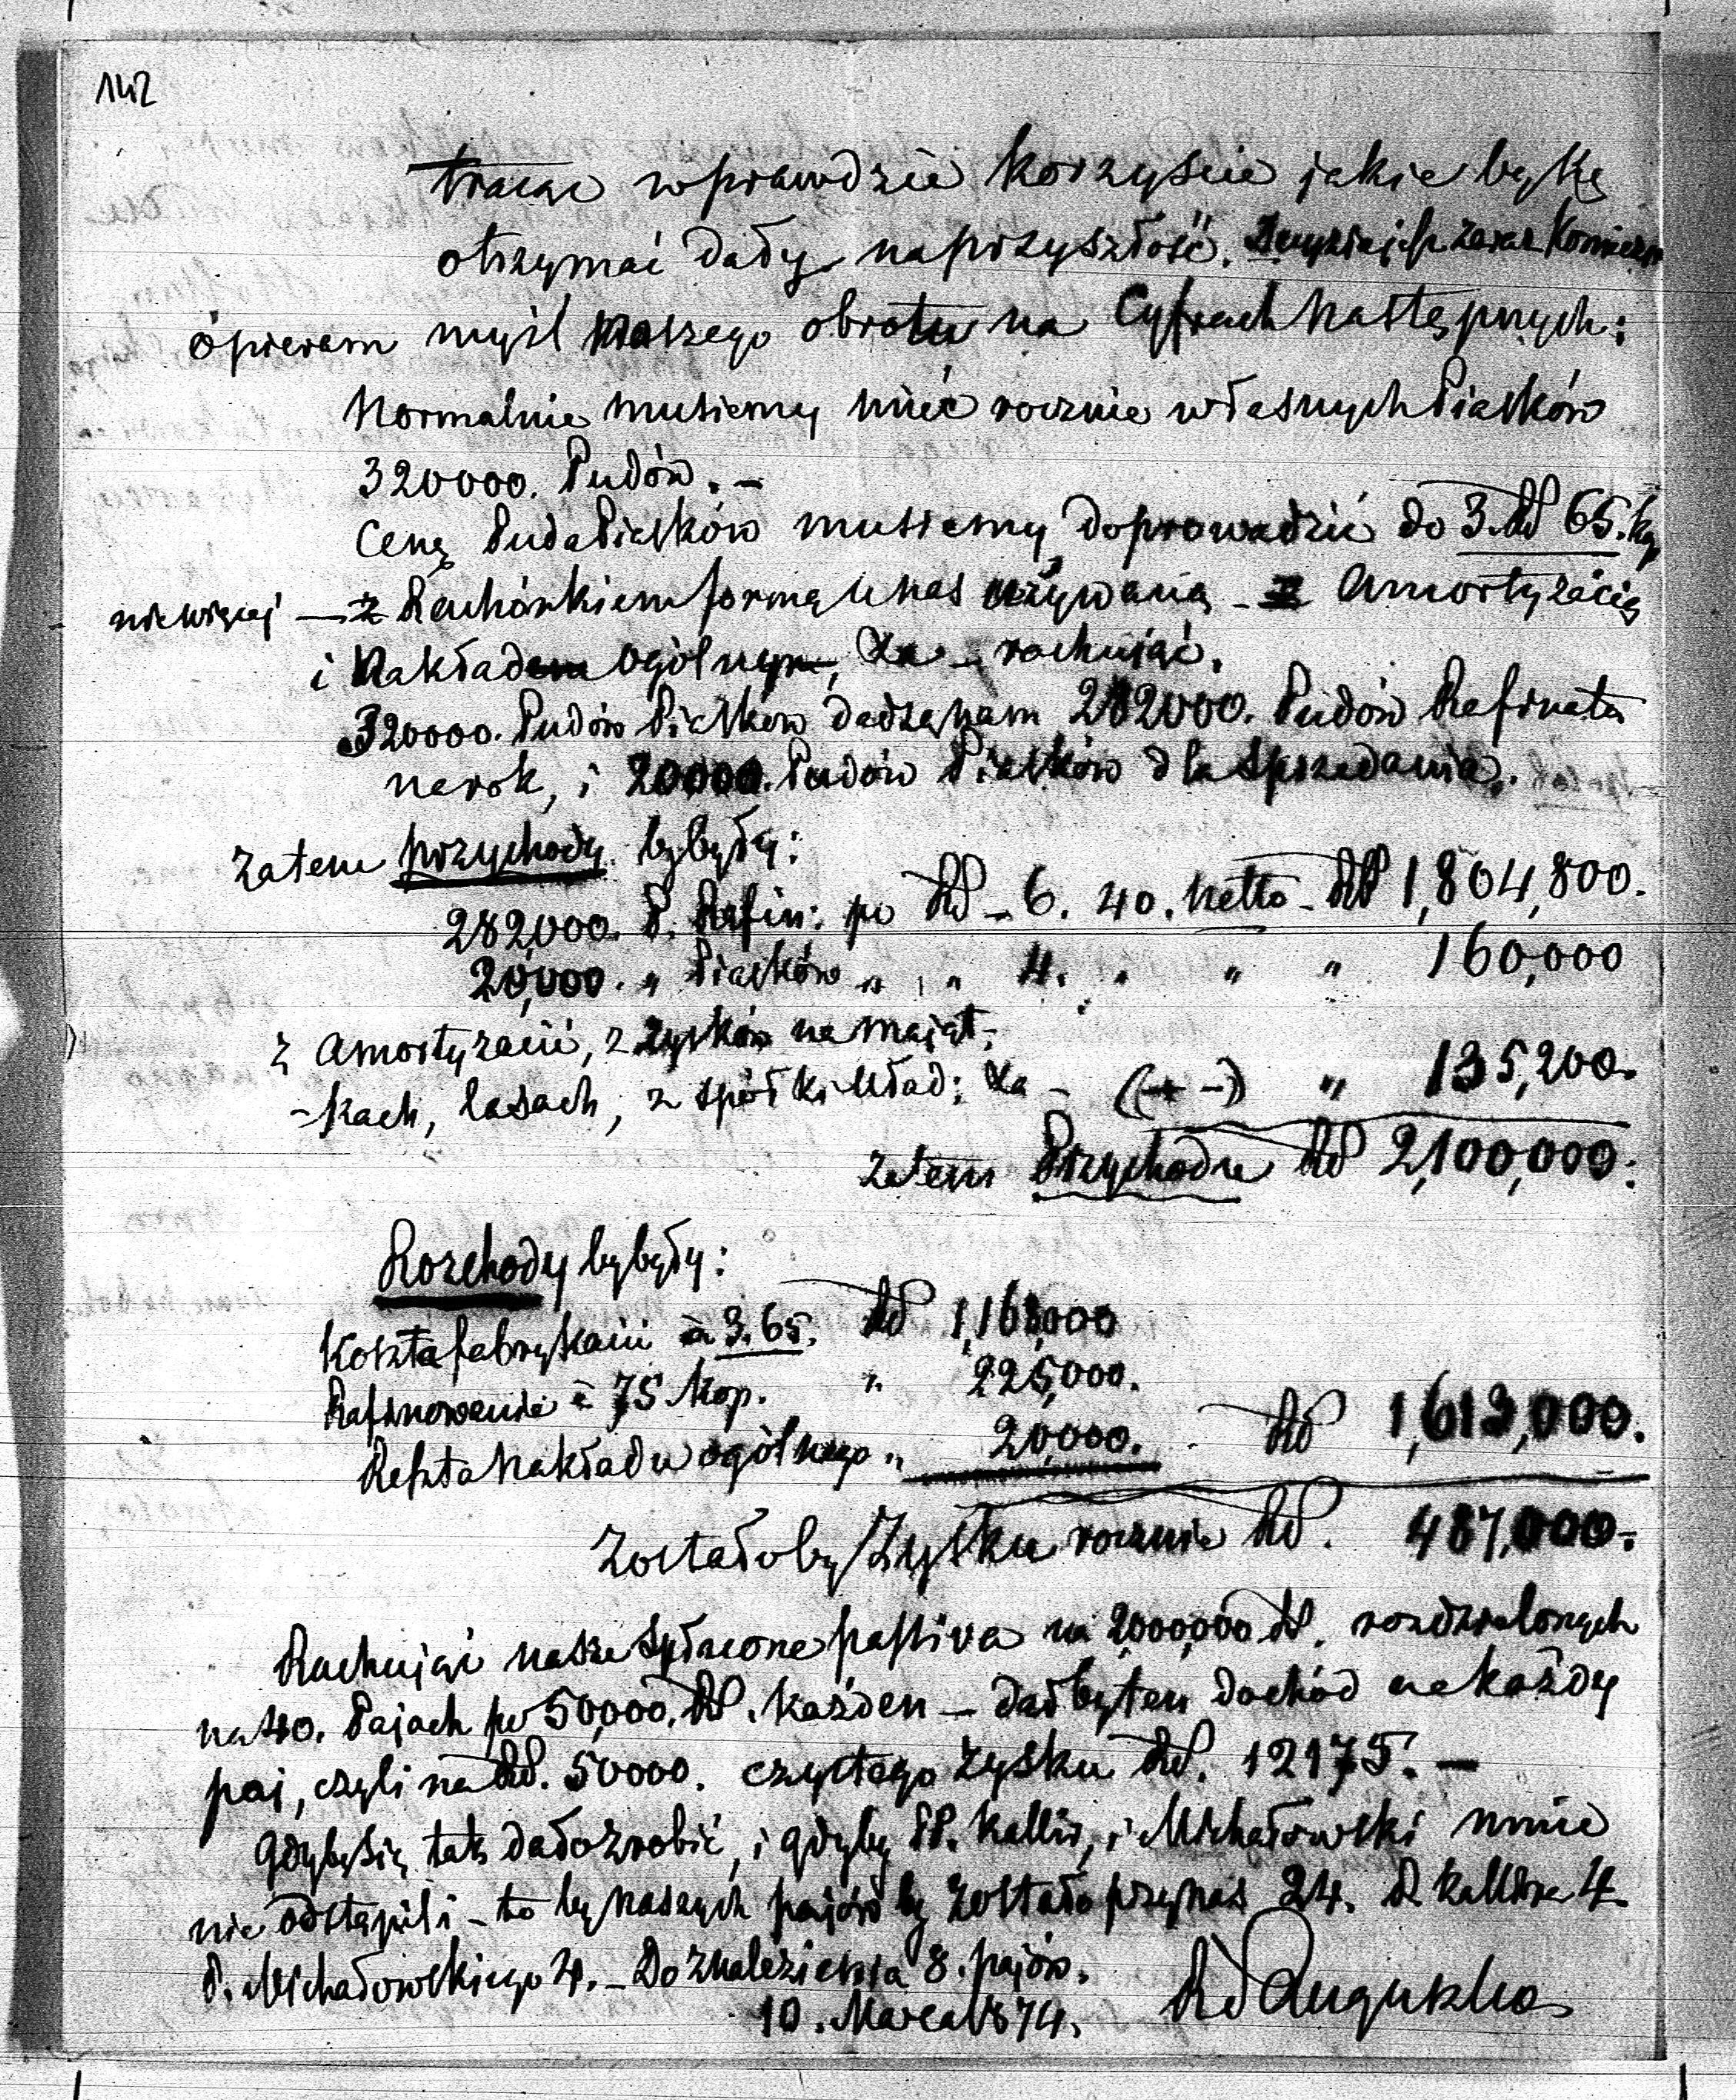 142
tracąc wprawdzie korzyście jakie by się
otrzymać dały na przyszłość. zaraz
opieram myśl naszego obrotu na Cyfrach następnych:
Normalnie musiemy mieć rocznie własnych Piasków
320000. Pudów. –
Cenę Puda Piasków musiemy doprowadzić do 3. Rb 65. kp
niewięcej — z Rachunkiem formą u nas używaną – Amortyzacią
i Nakład ogólny, – rachując.
320000. Pudów Piasków dadzą nam 282000. Pudów Rafinatu
na rok, i 20000. Pudów Piasków dla sprzedania.
Zatem przychody byłyby:
282,000. P. Rafin: po Rb – 6. 40. netto – Rb 1,804,800.
20,000. „ Piasków „ „ 4. . „ „ 160,000
z Amortyzacii, z zysków na mająt-
-kach, lasach, z spółki Uład: – (+ –) „ 135,200.
zatem Przychodu Rb 2,100,000:
Rozchody byłyby:
Koszta fabrykacii à 3. 65. Rb 1,168,000
Rafinowanie à 75 kop. „ 225,000.
Reszta Nakładu ogólnego „ 20,000. – Rb 1,613,000.
Zostałoby Zysku rocznie Rb. 487,000.
Rachując nasze passiva na 2,000,000 Rb. rozdzielonych
na 40. Pajach po 50,000. Rb. każden – dałby ten dochód na każdy
paj, czyli na Rb. 50000. czystego zysku Rb. 12175. –
Gdyby się tak dało zrobić, i gdyby PP. Kallir, i Michałowski mnie
nie odstąpili – to by naszych pajów by zostało przy nas 24. P. Kallira 4.
P. Michałowskiego 4. – Do znalezienia 8. pajów.
10. Marca 1874.